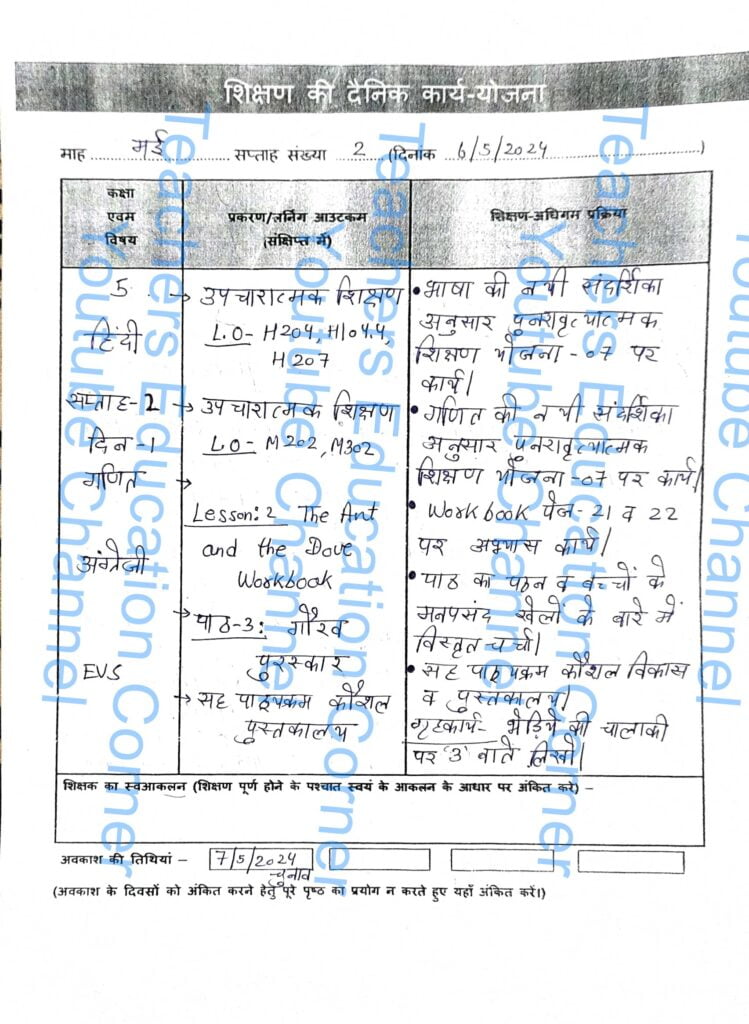 शिक्षण की दैनिक कार्य-योजना
माह मई सप्ताह संख्या 2 (दिनांक 6/5/2024)
कक्षा
एवम
विषय
प्रकरण/लर्निंग आउटकम
(संक्षिप्त में)
शिक्षण-अधिगम प्रक्रिया
5
हिंदी
सप्ताह-2
दिन-1
गणित
अंग्रेजी
EVS
→ उपचारात्मक शिक्षण
L.O- H204, H104.4,
H207
→ उपचारात्मक शिक्षण
L.O- M202, M302
→
Lesson: 2 The Ant
and the Dove
Workbook
→ पाठ-3: गौरव
पुरस्कार
→ सह पाठ्यक्रम कौशल
पुस्तकालय
• भाषा की नयी संदर्शिका
अनुसार पुनरावृत्यात्मक
शिक्षण योजना -07 पर
कार्य।
• गणित की नयी संदर्शिका
अनुसार पुनरावृत्यात्मक
शिक्षण योजना -07 पर कार्य।
• Workbook पेज- 21 व 22
पर अभ्यास कार्य।
• पाठ का पठन व बच्चों के
मनपसंद खेलों के बारे में
विस्तृत चर्चा।
• सह पाठ्यक्रम कौशल विकास
व पुस्तकालय।
गृहकार्य- भेड़िये की चालाकी
पर '3' बातें लिखो।
शिक्षक का स्वआकलन (शिक्षण पूर्ण होने के पश्चात स्वयं के आकलन के आधार पर अंकित करे) –
अवकाश की तिथियां – 7/5/2024
चुनाव
(अवकाश के दिवसों को अंकित करने हेतु पूरे पृष्ठ का प्रयोग न करते हुए यहाँ अंकित करें।)
Teachers Education Corner
Youtube Channel
Teachers Education Corner
Youtube Channel
Teachers Education Corner
Youtube Channel